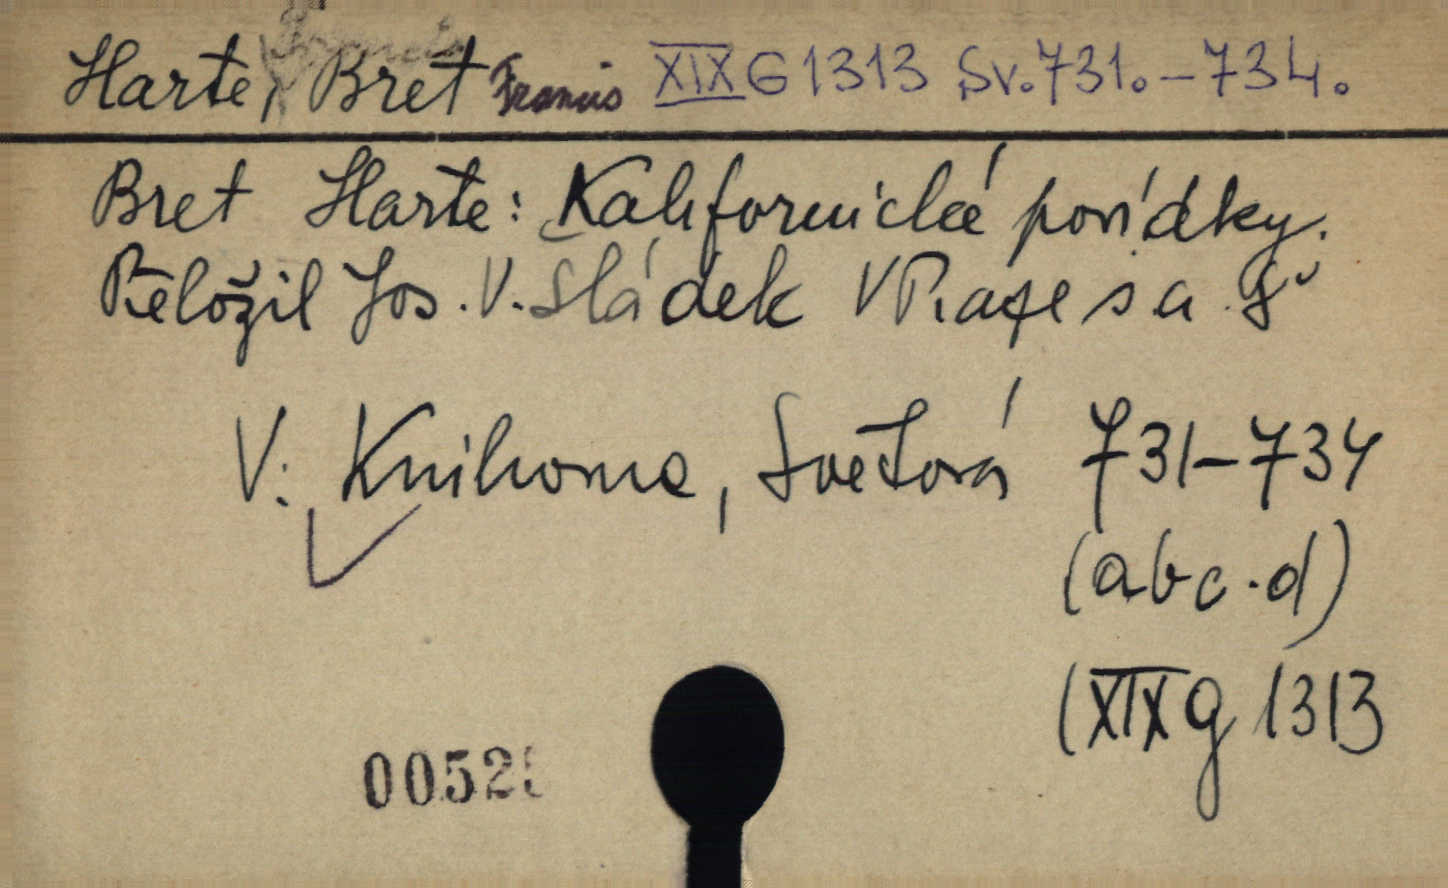 Harte, Bret Francis XIX G 1313 Sv. 731.-734.
Bret Harte: Kalifornické povídky.
Přeložil Jos. V. Sládek V Praze s a 8°
V: Knihovna, Světová 731-734
(abc.d)
(XIX g 1313